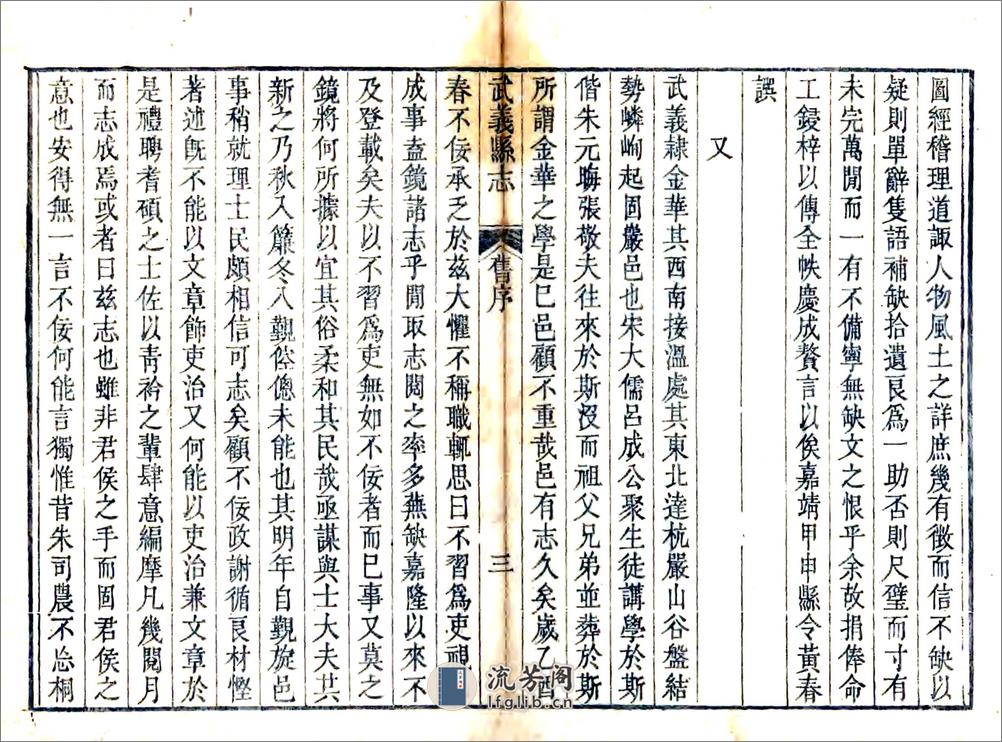 圖經稽理道諏人物風土之詳庶幾有徵而信不缺以
疑則單辭隻語補缺拾遺良爲一助否則尺璧而寸有
未完萬閒而一有不備寧無缺文之恨乎余故捐俸命
工鋟梓以傳全帙慶成贅言以俟嘉靖甲申縣令黃春
誤
又
武義隸金華其西南接溫處其東北達杭嚴山谷盤結
勢嶙峋起固巖邑也宋大儒呂成公聚生徒講學於斯
偕朱元晦張敬夫往來於斯沒而祖父兄弟並葬於斯
所謂金華之學是巳邑顧不重哉邑有志久矣歲乙酉
武義縣志 舊序 三
春不佞承乏於茲大懼不稱職輒思曰不習爲吏視
成事盍鏡諸志乎閒取志閱之率多蕪缺嘉隆以來不
及登載矣夫以不習爲吏無如不佞者而巳事又莫之
鏡將何所據以宜其俗柔和其民哉亟謀與士大夫共
新之乃秋入簾冬八覲倥傯未能也其明年自覲旋邑
事稍就理士民頗相信可志矣顧不佞政謝循良材慳
著述旣不能以文章飾吏治又何能以吏治兼文章於
是禮聘耆碩之士佐以靑衿之輩肆意編摩凡幾閱月
而志成焉或者曰茲志也雖非君侯之手而固君侯之
意也安得無一言不佞何能言獨惟昔朱司農不忘桐
流芳阁
lfglib.cn